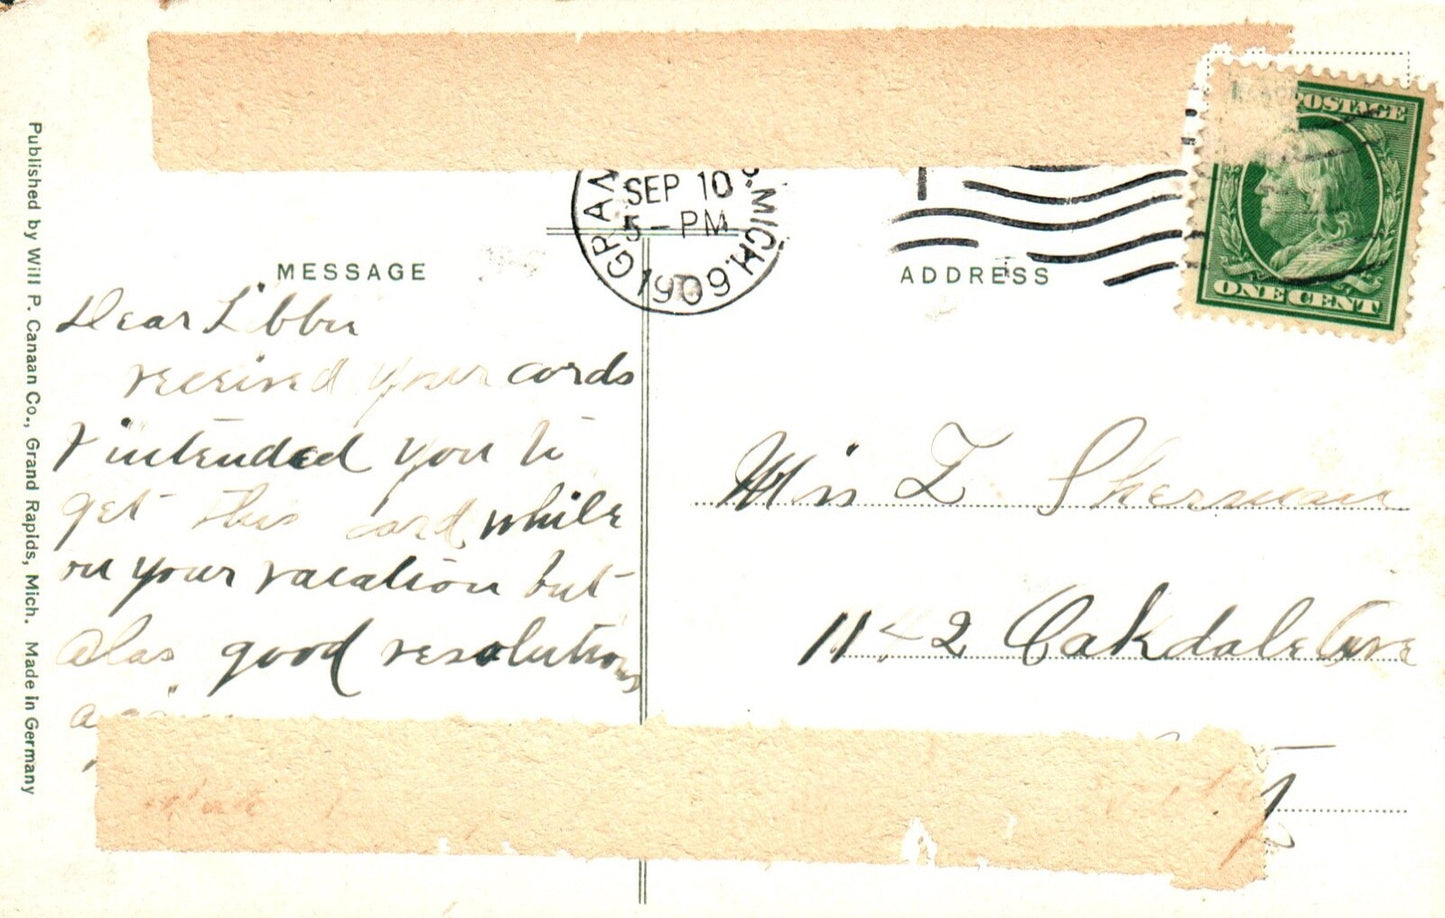 Published by Will P. Canaan Co., Grand Rapids, Mich. Made in Germany
SEP 10
5 - PM
GRAN
MICH.
1909
POSTAGE
ONE CENT
MESSAGE
ADDRESS
Dear Libbie
received your cords
I intended you to
get this card while
on your vacation but
alas good resolutions
Miss L Sherman
1142 Oakdale Ave